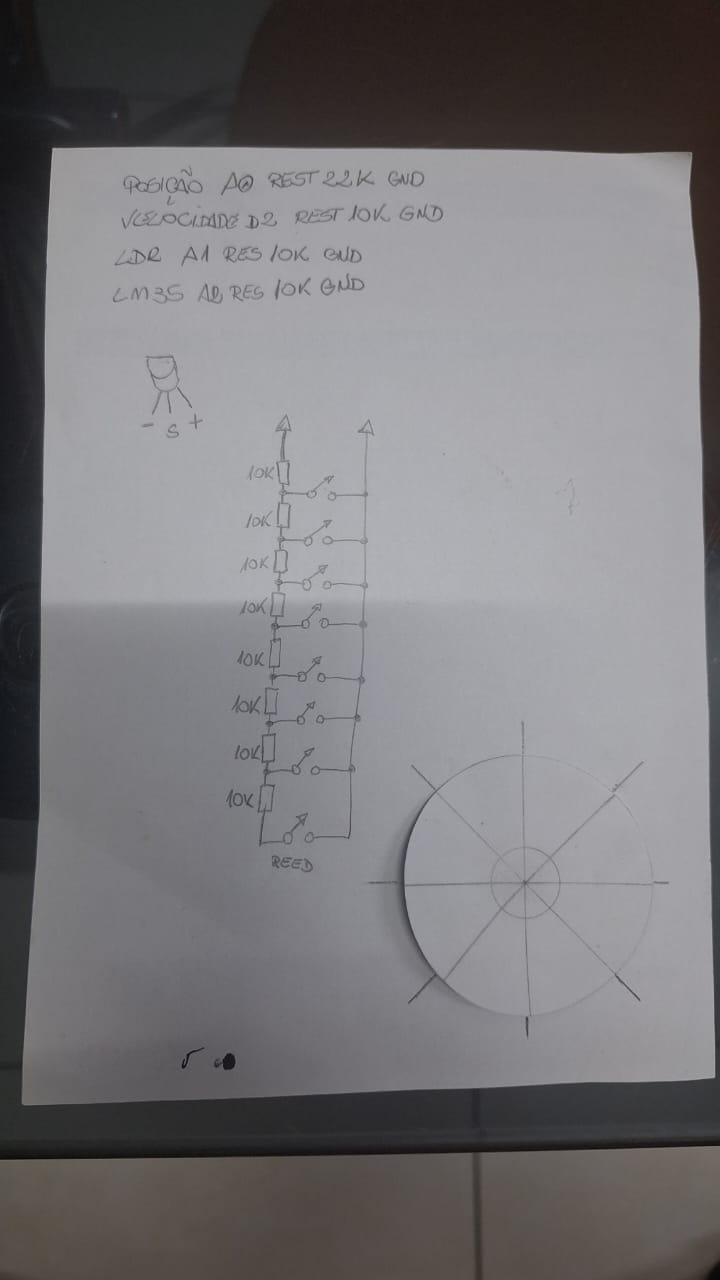 POSIÇÃO A0 REST 22K GND
VELOCIDADE D2 REST 10K GND
LDR A1 RES 10K GND
LM35 A2 RES 10K GND
- S +
10K
10K
10K
10K
10K
10K
10K
10K
REED